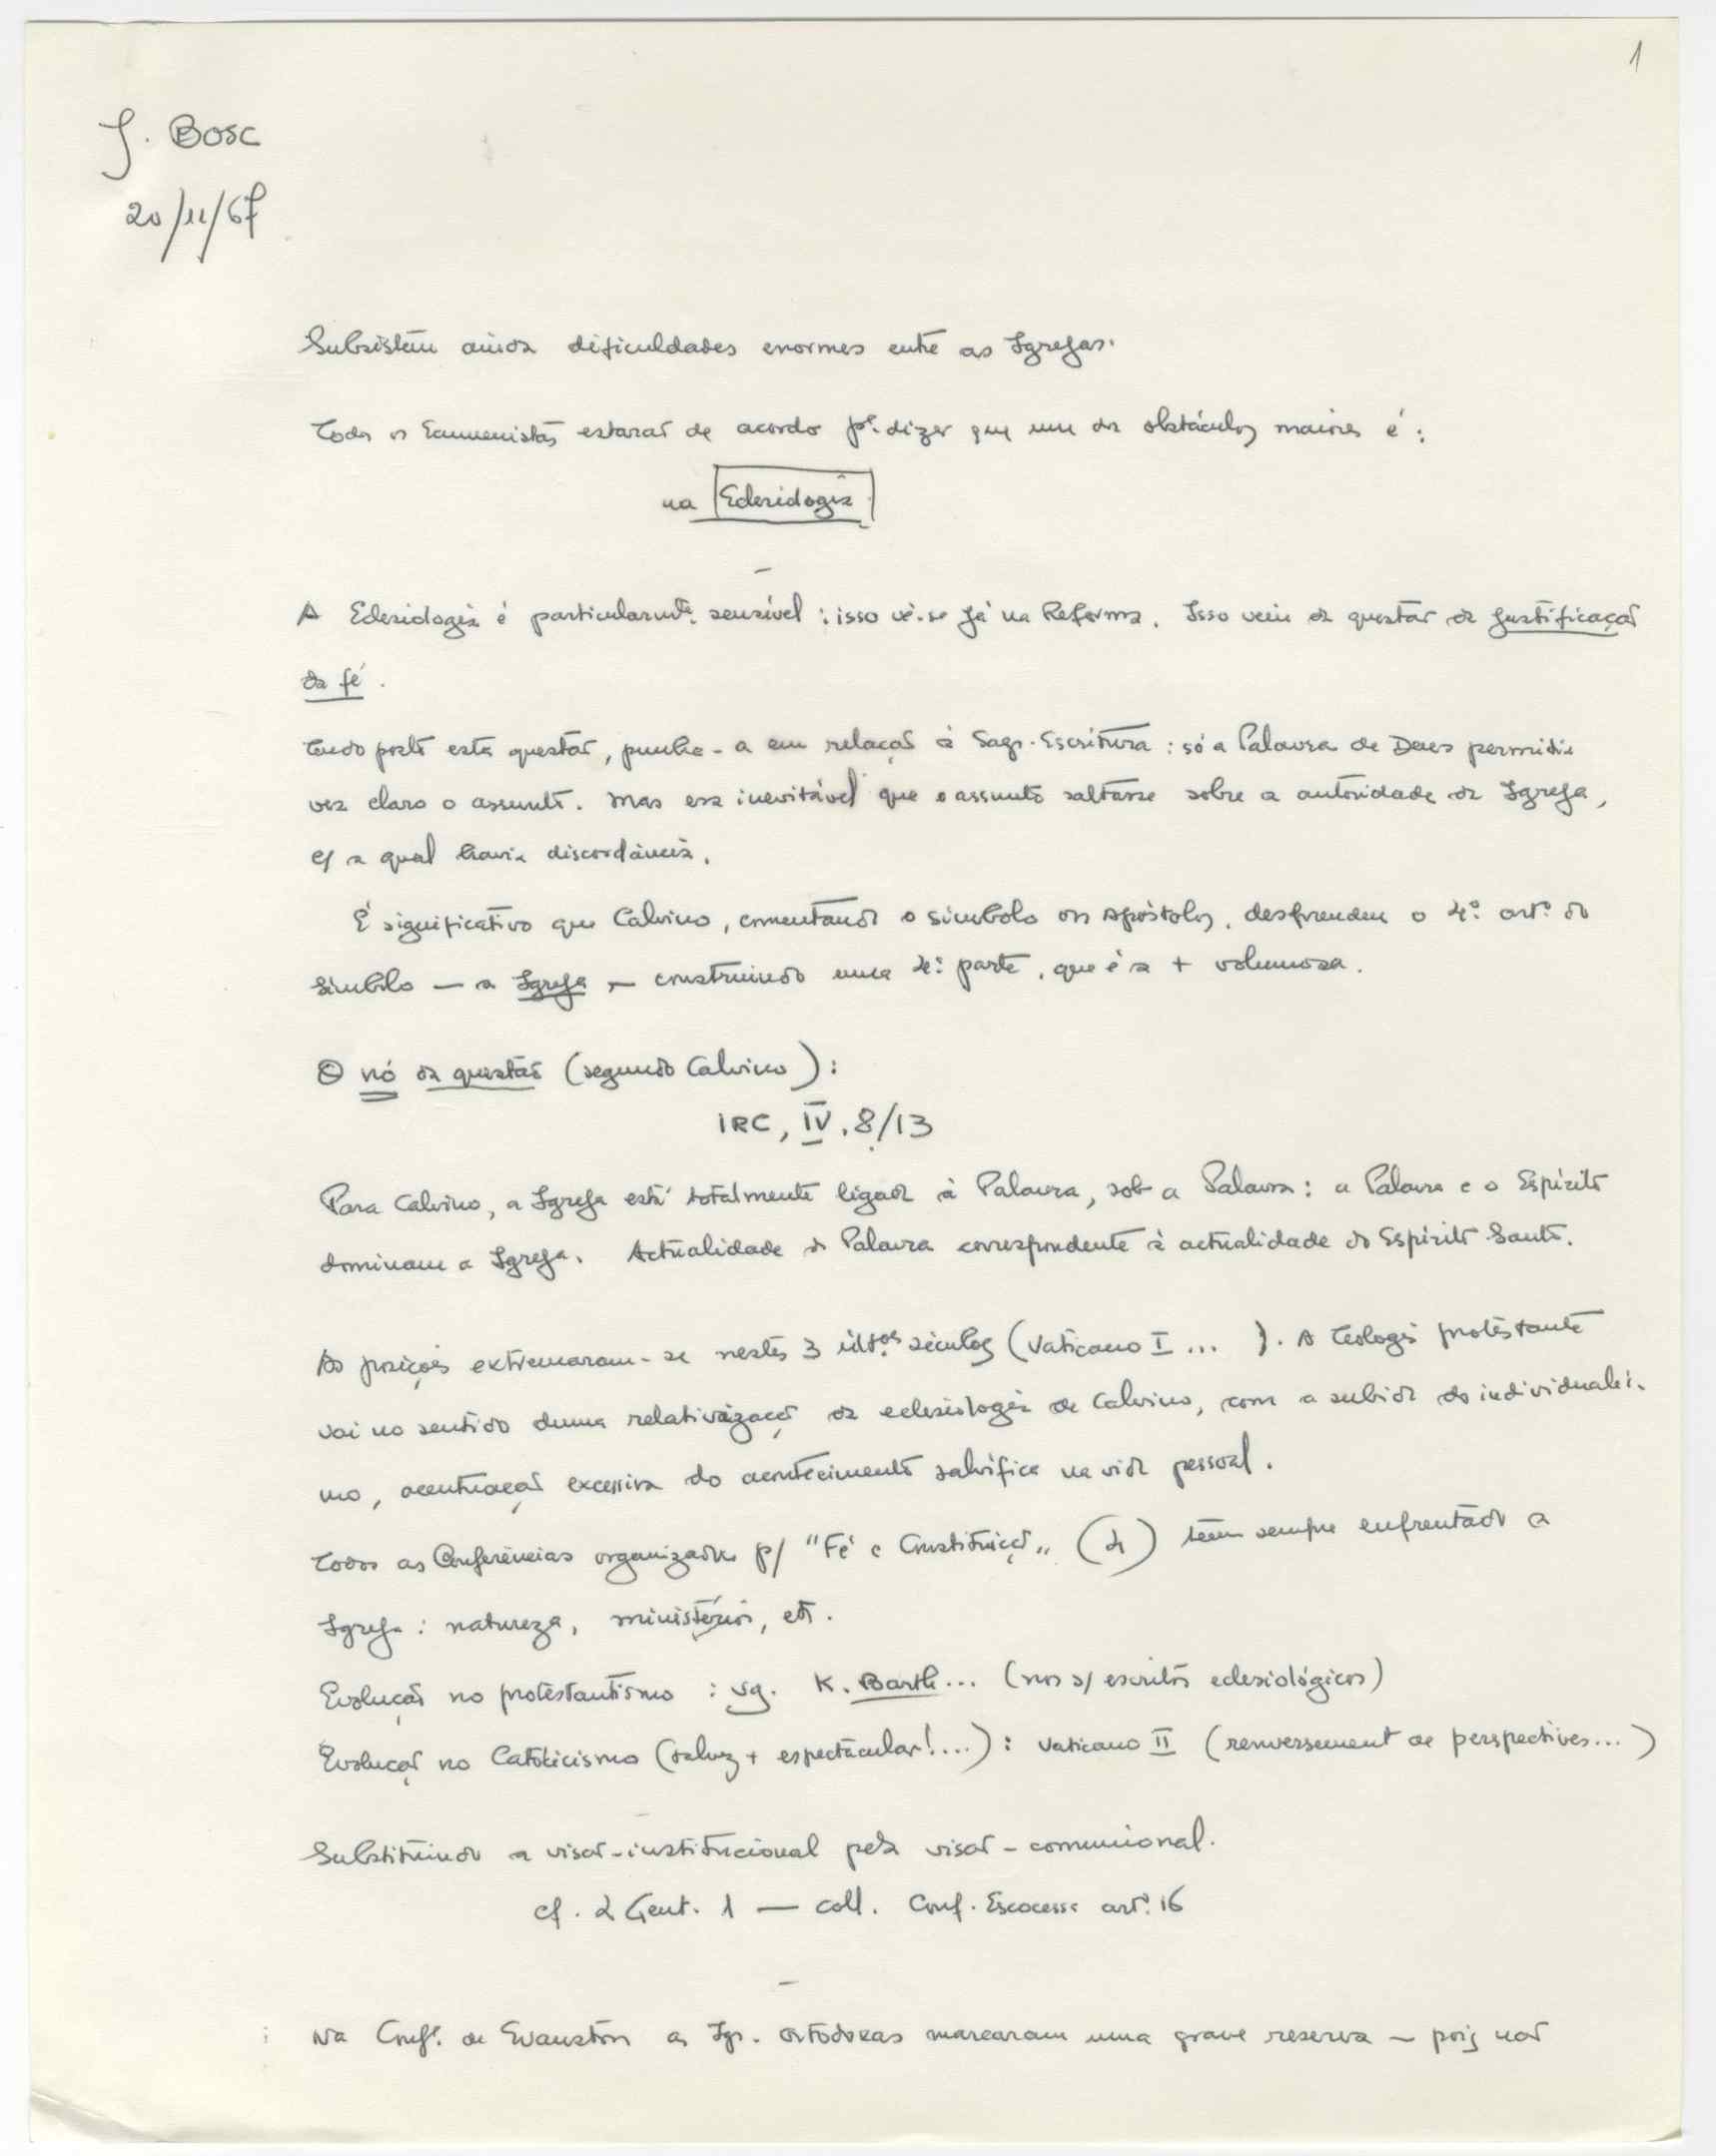 1
J. Bosc
20/11/67
Subsistem ainda dificuldades enormes entre as Igrejas.
Todos os Ecumenistas estarão de acordo pª. dizer que um dos obstáculos maiores é:
na Eclesiologia
A Eclesiologia é particularmte. sensível : isso vê-se já na Reforma. Isso vem da questão da justificação
da fé.
Tendo posto esta questão, punha-a em relação à Sagr. Escritura : só a Palavra de Deus permitia
ver claro o assunto. Mas era inevitável que o assunto saltasse sobre a autoridade da Igreja,
c/ a qual havia discordância.
É significativo que Calvino, comentando o símbolo dos Apóstolos, desprendeu o 4º. artº. do
símbolo — a Igreja — construindo uma 4ª. parte, que é a + volumosa.
O nó da questão (segundo Calvino) :
IRC, IV, 8/13
Para Calvino, a Igreja está totalmente ligada à Palavra, sob a Palavra : a Palavra e o Espírito
dominam a Igreja. Actualidade da Palavra correspondente à actualidade do Espírito Santo.
As posições extremaram-se nestes 3 últos. séculos (Vaticano I ... ). A Teologia protestante
vai no sentido duma relativização da eclesiologia de Calvino, com a subida do individualis-
mo, acentuação excessiva do acontecimento salvífico na vida pessoal.
Todas as Conferências organizadas p/ "Fé e Constituição" (4) têm sempre enfrentado a
Igreja : natureza, ministérios, etc.
Evolução no protestantismo : vg. K. Barth... (nos s/ escritos eclesiológicos)
Evolução no Catolicismo (talvez + espectacular!...) : Vaticano II (renversement de perspectives...)
Substituindo a visão-institucional pela visão-comunional.
cf. L Gent. 1 — coll. Conf. Escocesa artº. 16
Na Confª. de Evanston as Igr. Ortodoxas marcaram uma grave reserva — pois não